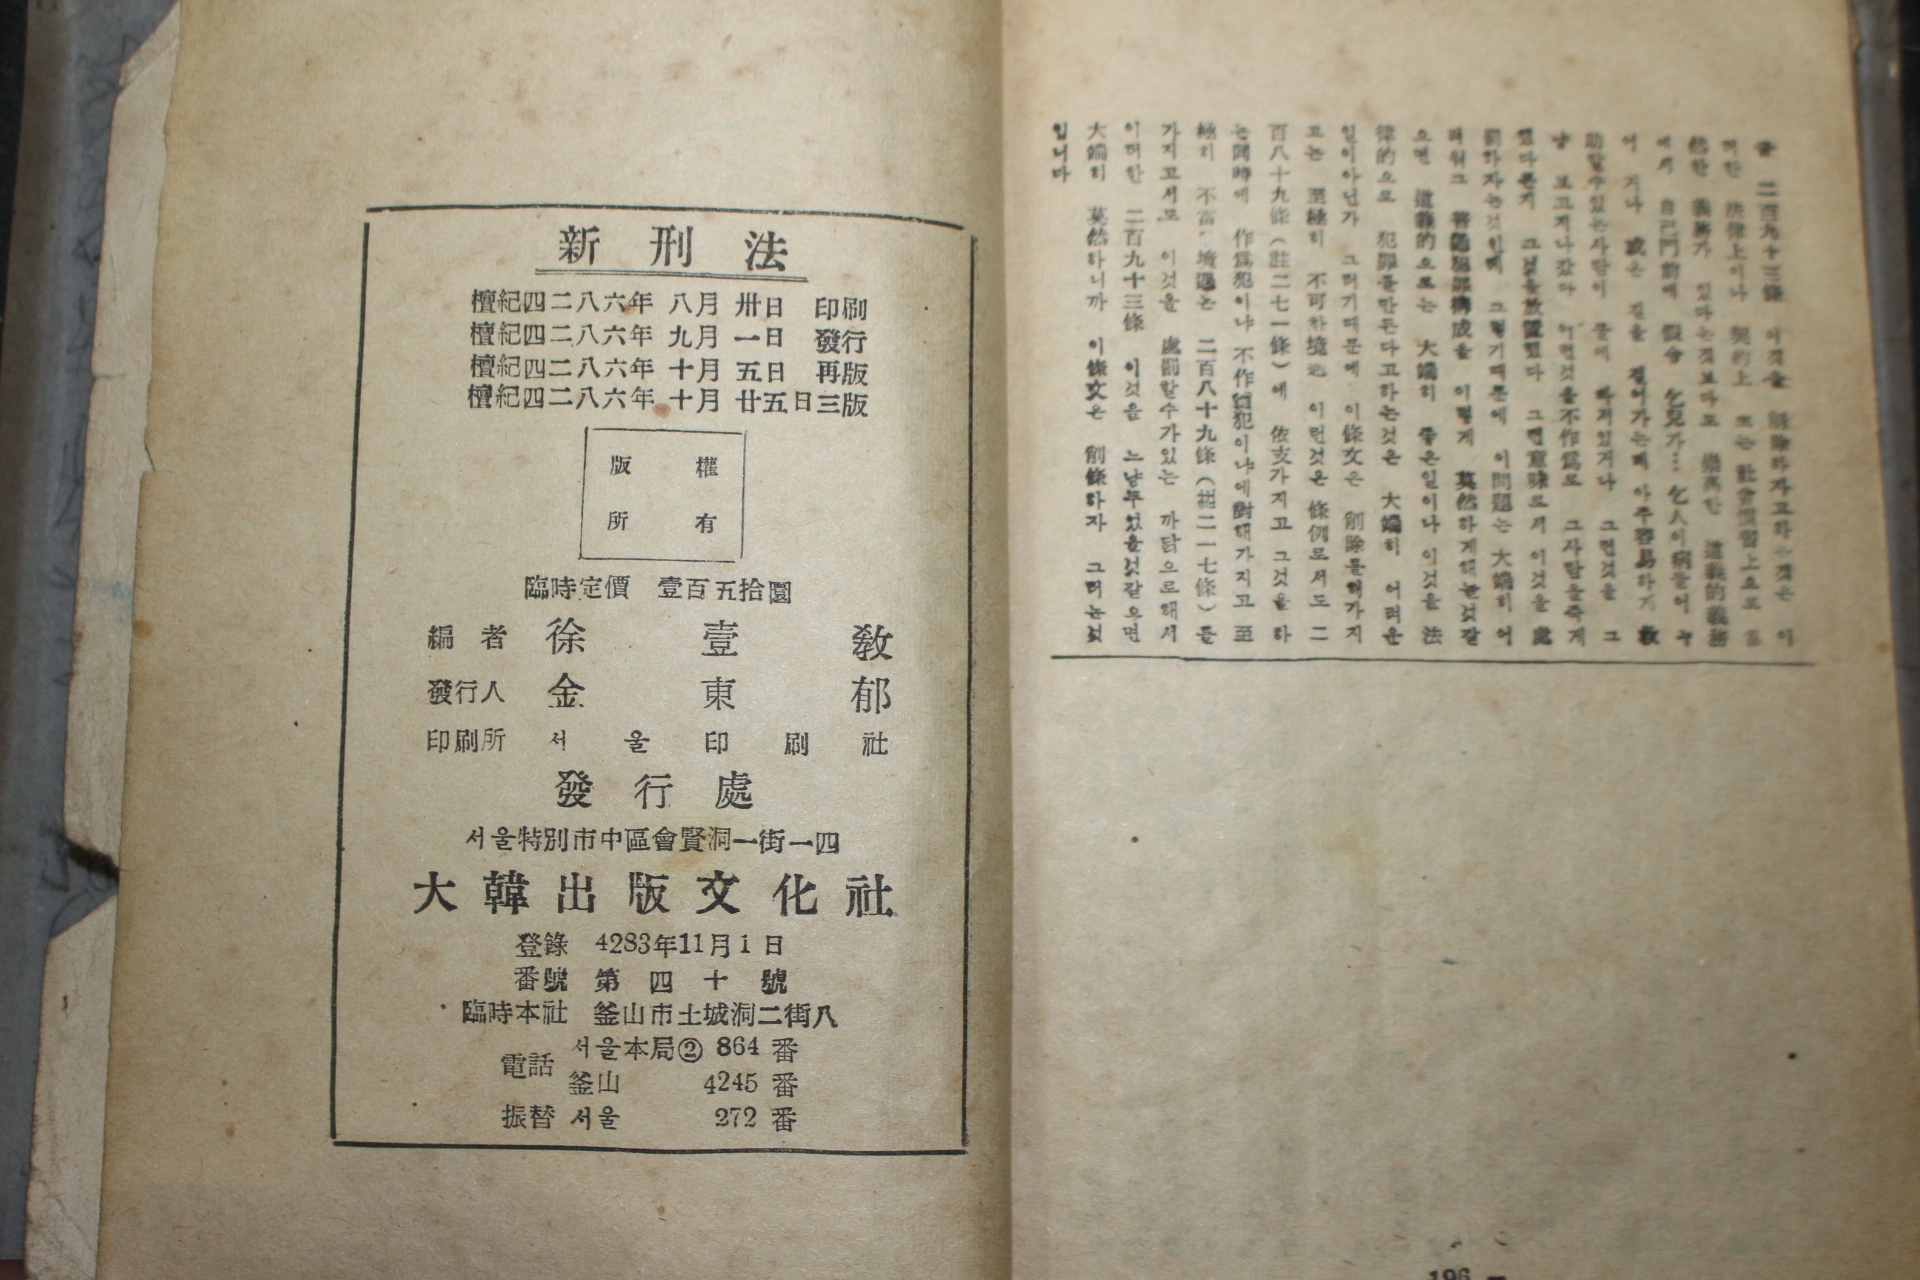 新刑法
檀紀四二八六年 八月 卅日 印刷
檀紀四二八六年 九月 一日 發行
檀紀四二八六年 十月 五日 再版
檀紀四二八六年 十月 廿五日 三版
版權
所有
臨時定價 壹百五拾圜
編者 徐壹敎
發行人 金東郁
印刷所 서울印刷社
發行處
서울特別市中區會賢洞一街一四
大韓出版文化社
登錄 4283年11月1日
番號 第四十號
臨時本社 釜山市土城洞二街八
電話 서울本局② 864番
釜山 4245番
振替 서울 272番
二百九十三條 이것을 削除하자고하는것은 이
러한 法律上이나 契約上 또는 社會慣習上으로
然한 義務가 있다는것보다도 崇高한 道義的義務
에서 自己門前에 假令 乞兒가… 乞人이病들어 누
어 거나 或은 길을 걸어가는데 아주容易하게 救
助할수있는사람이 물에 빠져있거나 그런것을 그
냥 보고지나갔다 이런것을不作爲로 그사람을죽게
했다든지 그것을放置했다 그런意味로서 이것을 處
罰하자는것인데 그렇기때문에 이問題는 大端히 어
려워그 普遍犯罪構成을 이렇게 莫然하게해논것같
으면 道義的으로는 大端히 좋은일이나 이것을 法
律的으로 犯罪를만든다고하는것은 大端히 어려운
일이아닌가 그러기때문에 이條文은 削除를해가지
고는 至極히 不可한境遇 이런것은 條例로서도 二
百八十九條(註二七一條)에 依支가지고 그것을하
는同時에 作爲犯이냐 不作爲犯이냐에對해가지고 至
極히 不當한境遇는 二百八十九條(註二一七條)를
가지고서도 이것을 處罰할수가있는 까닭으로해서
이러한 二百九十三條 이것을 느냥두었을것같으면
大端히 莫然하니까 이條文은 削條하자 그러는것
입니다
196